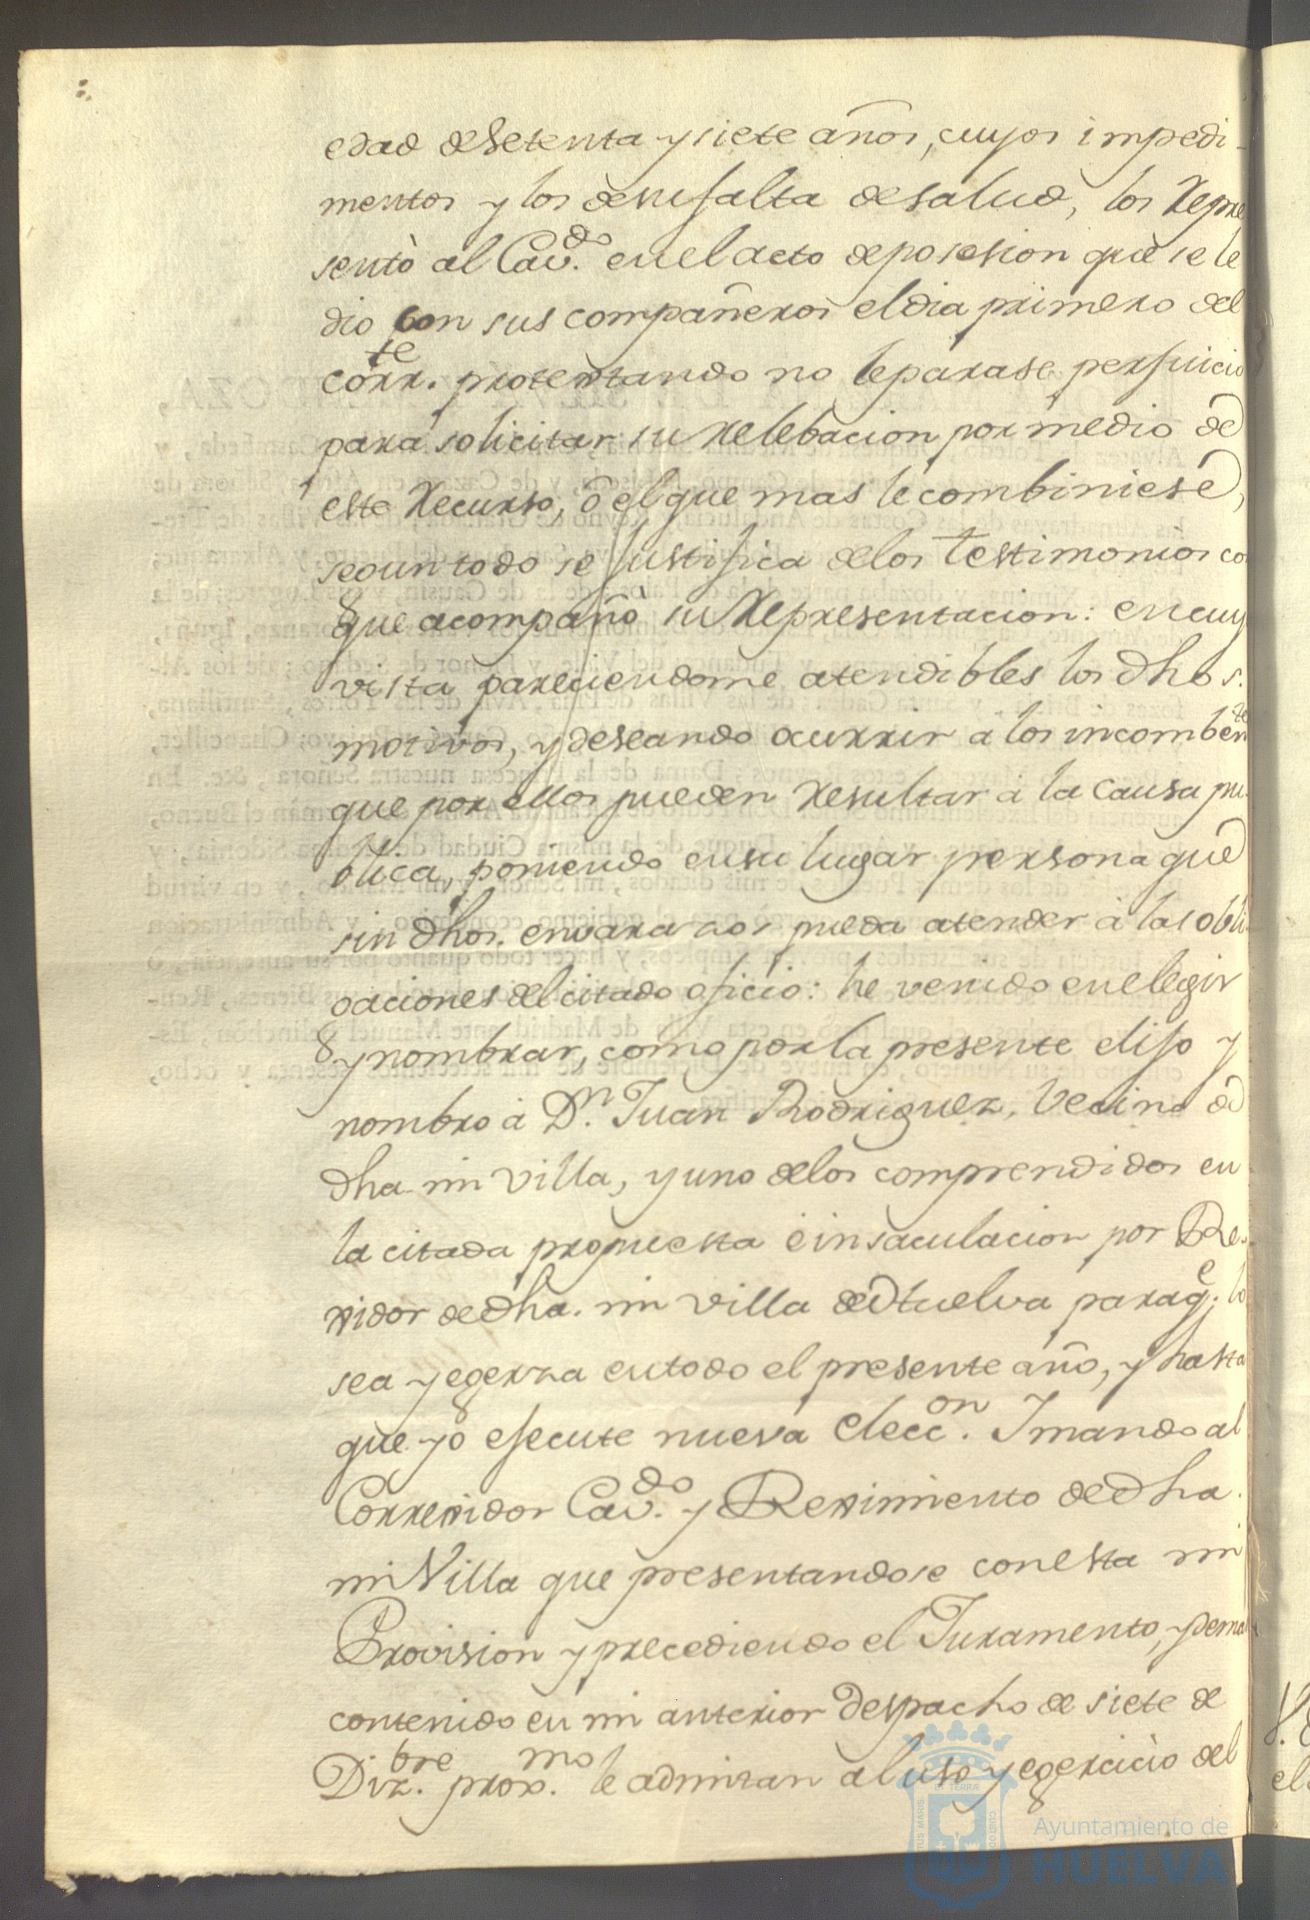 edad de setenta y siete años, cuyos impedi-
mentos y los de su falta de salud, los Repre
sentò al Cav.do en el acto de posesion que se le
dio con sus compañeros el dia primero del
corr.te protestando no le parase perjuicio
para solicitar su relebacion por medio de
este Recurso, ò el que mas le combiniese,
segun todo se justifica de los testimonios co
que acompañò su Representacion: en cuy
vista pareciendome atendibles los dhos.
motivos, y deseando ocurrir à los incomben.tes
que por ellos pueden resultar à la causa pu
blica, poniendo en su lugar persona que
sin dhos. envarazos pueda atender à las obli
gaciones del citado oficio: he venido en elegir
y nombrar, como por la presente elijo y
nombro à D.n Juan Rodriguez, Vecino de
dha mi villa, y uno de los comprendidos en
la citada propuesta è insaculacion por Re-
xidor de dha. mi villa de Huelva paraq.e lo
sea y egerza en todo el presente año, y hasta
que yo ejecute nueva elecc.on Y mando al
Correxidor Cav.do y Reximiento de dha.
mi Villa que presentandose con esta mi
Provision y precediendo el Juramento, y demas
contenido en mi anterior Despacho de siete de
Diz.bre prox.mo le admitan al uso y egercicio del
Ayuntamiento de
HUELVA